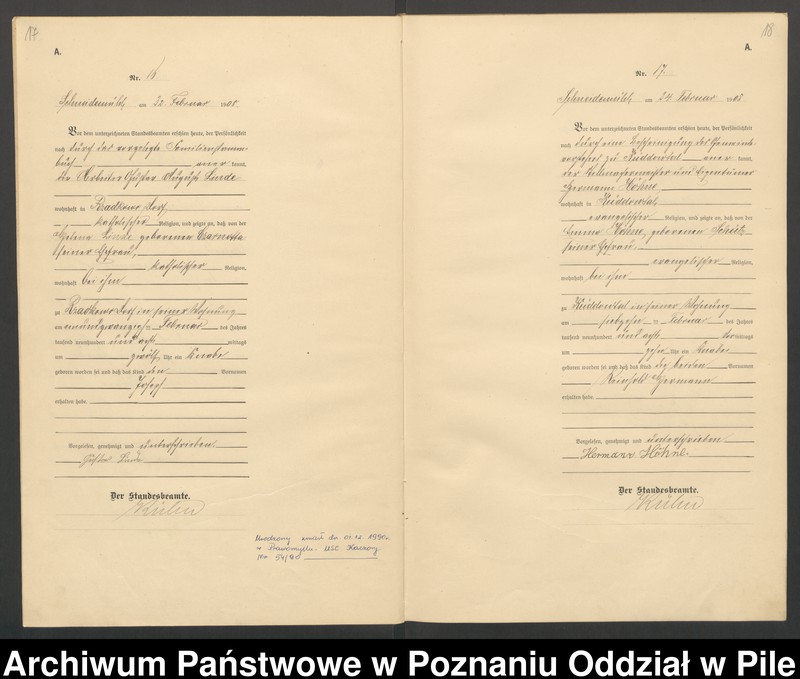 17
A.
Nr. 16
Schneidemühl, am 22. Februar 1908.
Vor dem unterzeichneten Standesbeamten erschien heute, der Persönlichkeit
nach durch das vorgelegte Familienstamm-
buch anerkannt,
der Arbeiter Gustav August Linde
wohnhaft in
katholischer Religion, und zeigte an, daß von der
Helena Linde geborenen Czarnotta
seiner Ehefrau,
katholischer Religion,
wohnhaft bei ihm
zu in seiner Wohnung
am einundzwanzigsten Februar des Jahres
tausend neunhundert und acht mittags
um zwölf Uhr ein Knabe
geboren worden sei und daß das Kind den Vornamen
Joseph
erhalten habe.
Vorgelesen, genehmigt und unterschrieben.
Gustav Linde
Der Standesbeamte.
Urodzony zmarł dn. 01.12.1990r.
w USC
Nr 54/90
18
A.
Nr. 17.
Schneidemühl, am 24 Februar 1908
Vor dem unterzeichneten Standesbeamten erschien heute, der Persönlichkeit
nach durch eine Bescheinigung des Gemeinde-
vorstehers zu Küddowtal anerkannt,
der und Eigentümer
Hermann Höhne,
wohnhaft in Küddowtal,
evangelischer Religion, und zeigte an, daß von der
Emma Höhne, geborenen Schulz
seiner Ehefrau
evangelischer Religion,
wohnhaft bei ihm
zu Küddowtal in seiner Wohnung
am siebzehnten Februar des Jahres
tausend neunhundert und acht vormittags
um zehn Uhr ein Knabe
geboren worden sei und daß das Kind die beiden Vornamen
Reinhold Hermann
erhalten habe.
Vorgelesen, genehmigt und unterschrieben
Hermann Höhne.
Der Standesbeamte.
Archiwum Państwowe w Poznaniu Oddział w Pile